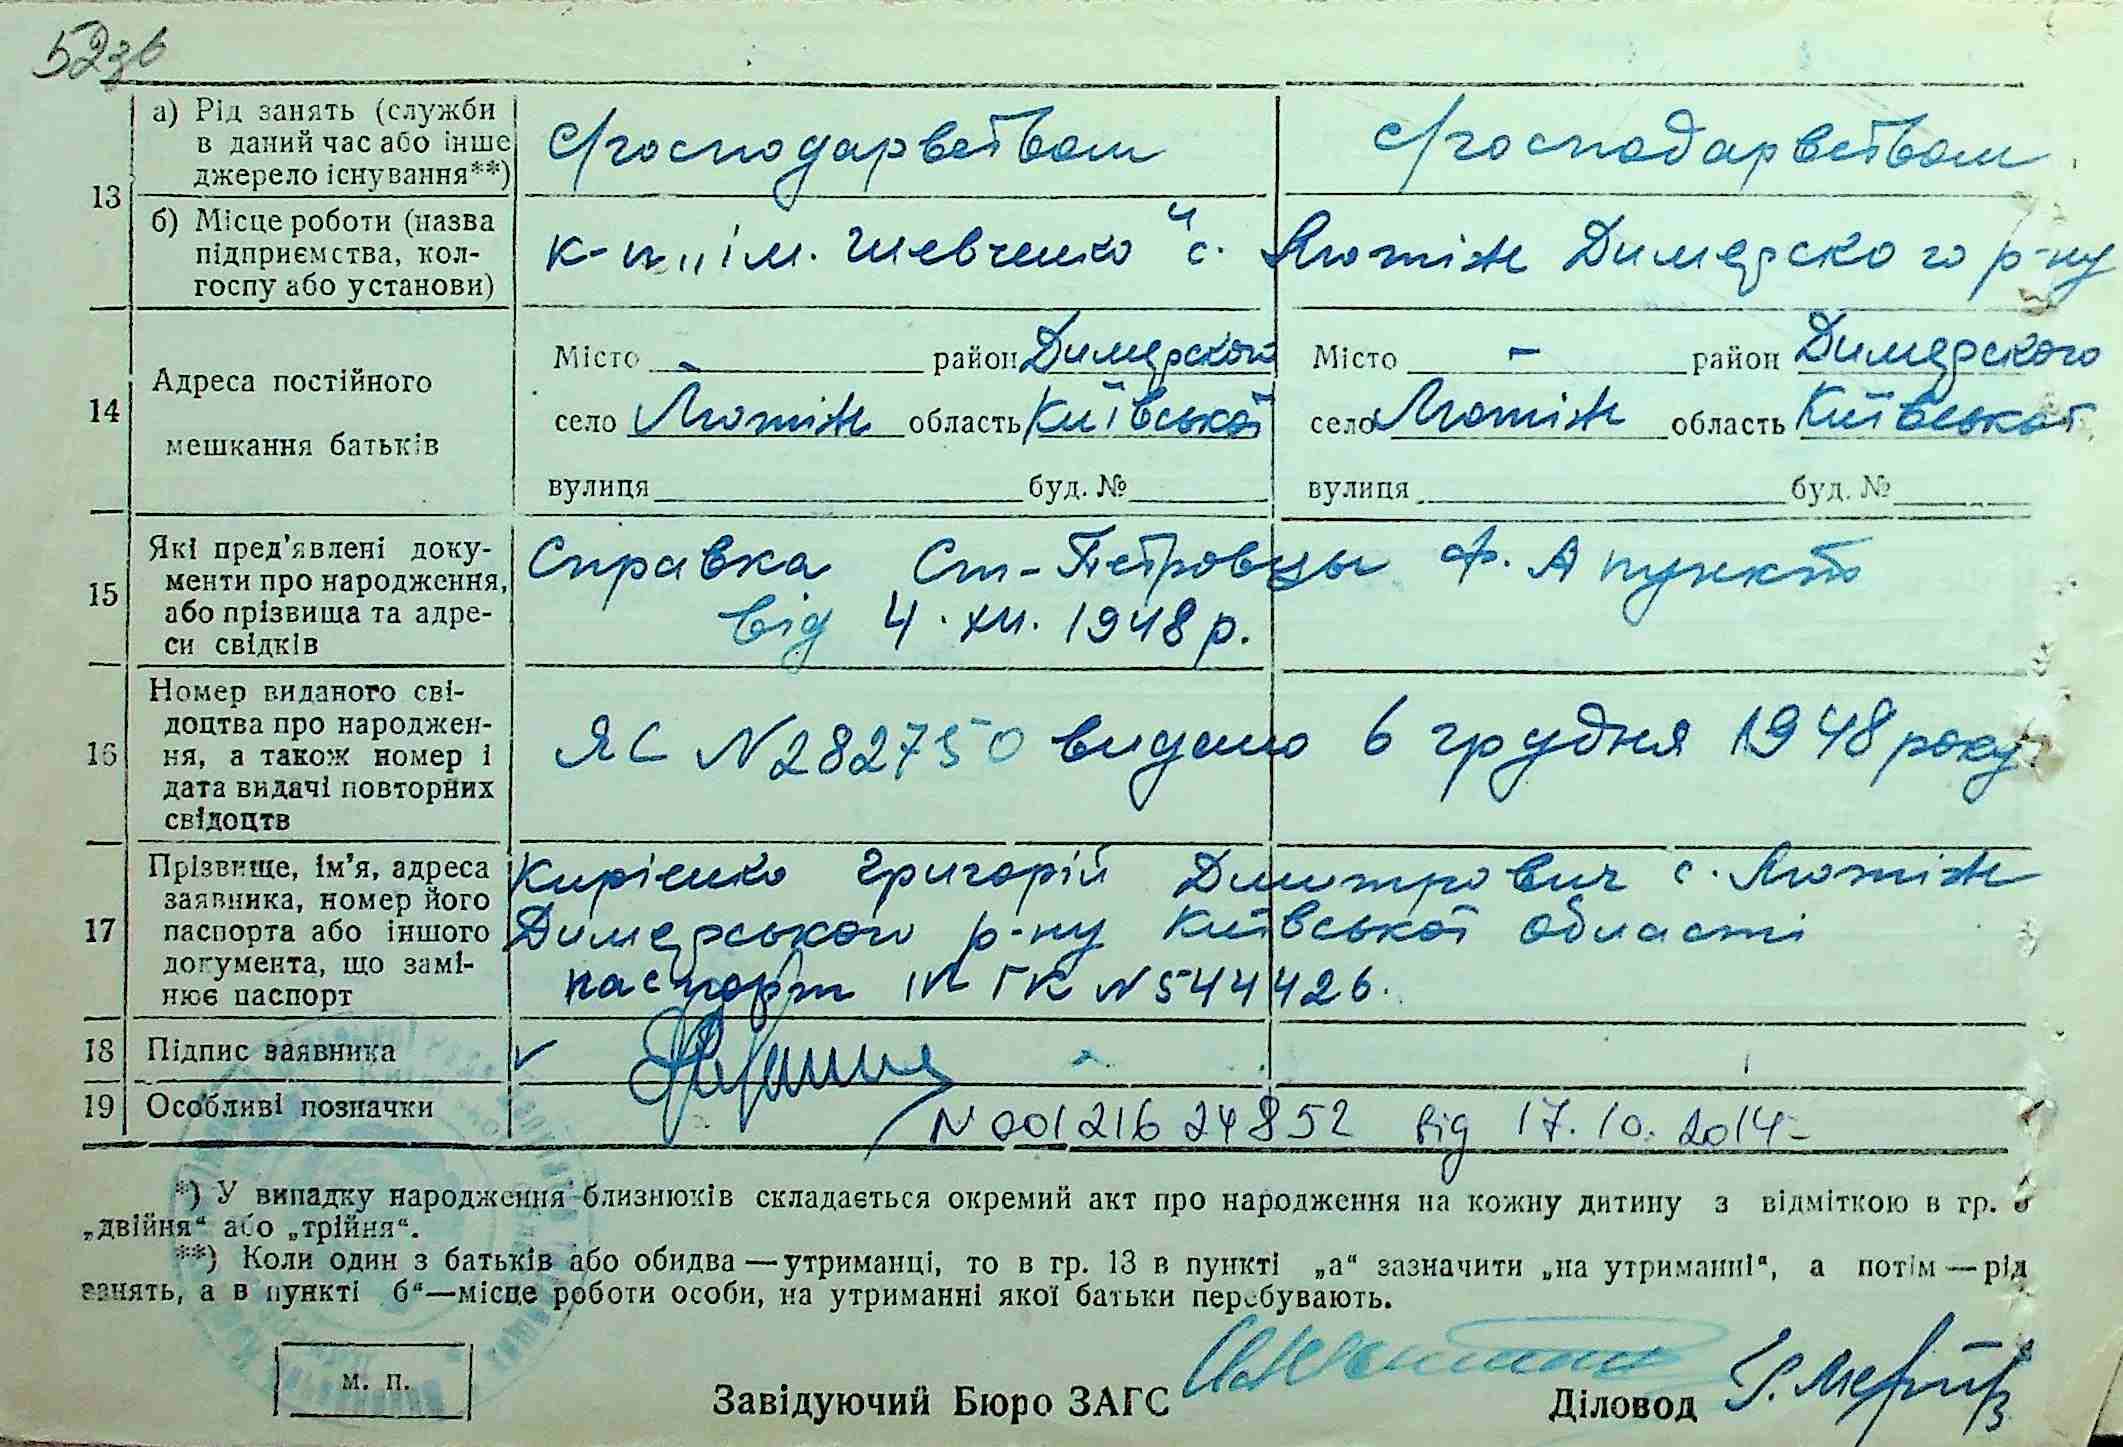 52зв
13
а) Рід занять (служби
в даний час або інше
джерело існування**)
с/господарвством
с/господарвством
б) Місце роботи (назва
підприємства, кол-
госпу або установи)
к-п „ім. Шевченко“ с. Лютіж Димерского р-ну
14
Адреса постійного
мешкання батьків
Місто - район Димерского
село Лютіж область Київської
вулиця буд. №
Місто - район Димерского
село Лютіж область Київської
вулиця буд. №
15
Які пред'явлені доку-
менти про народження,
або прізвища та адре-
си свідків
Справка Ст-Петровцы Ф. А пункта
від 4. XII. 1948 р.
16
Номер виданого сві-
доцтва про народжен-
ня, а також номер і
дата видачі повторних
свідоцтв
ЯС N 282750 видано 6 грудня 1948 року
17
Прізвище, ім'я, адреса
заявника, номер його
паспорта або іншого
документа, що замі-
нює паспорт
Кирієнко Григорій Дмитрович с. Лютіж
Димерського р-ну Київської області
паспорт ГК N 544426.
18 Підпис заявника
19 Особливі позначки
N 00121624852 від 17.10.2014
*) У випадку народження близнюків складається окремий акт про народження на кожну дитину з відміткою в гр.
„двійня“ або „трійня“.
**) Коли один з батьків або обидва — утриманці, то в гр. 13 в пункті „а“ зазначити „на утриманні“, а потім — рід
занять, а в пункті б“ — місце роботи особи, на утриманні якої батьки перебувають.
м. п.
Завідуючий Бюро ЗАГС
Діловод